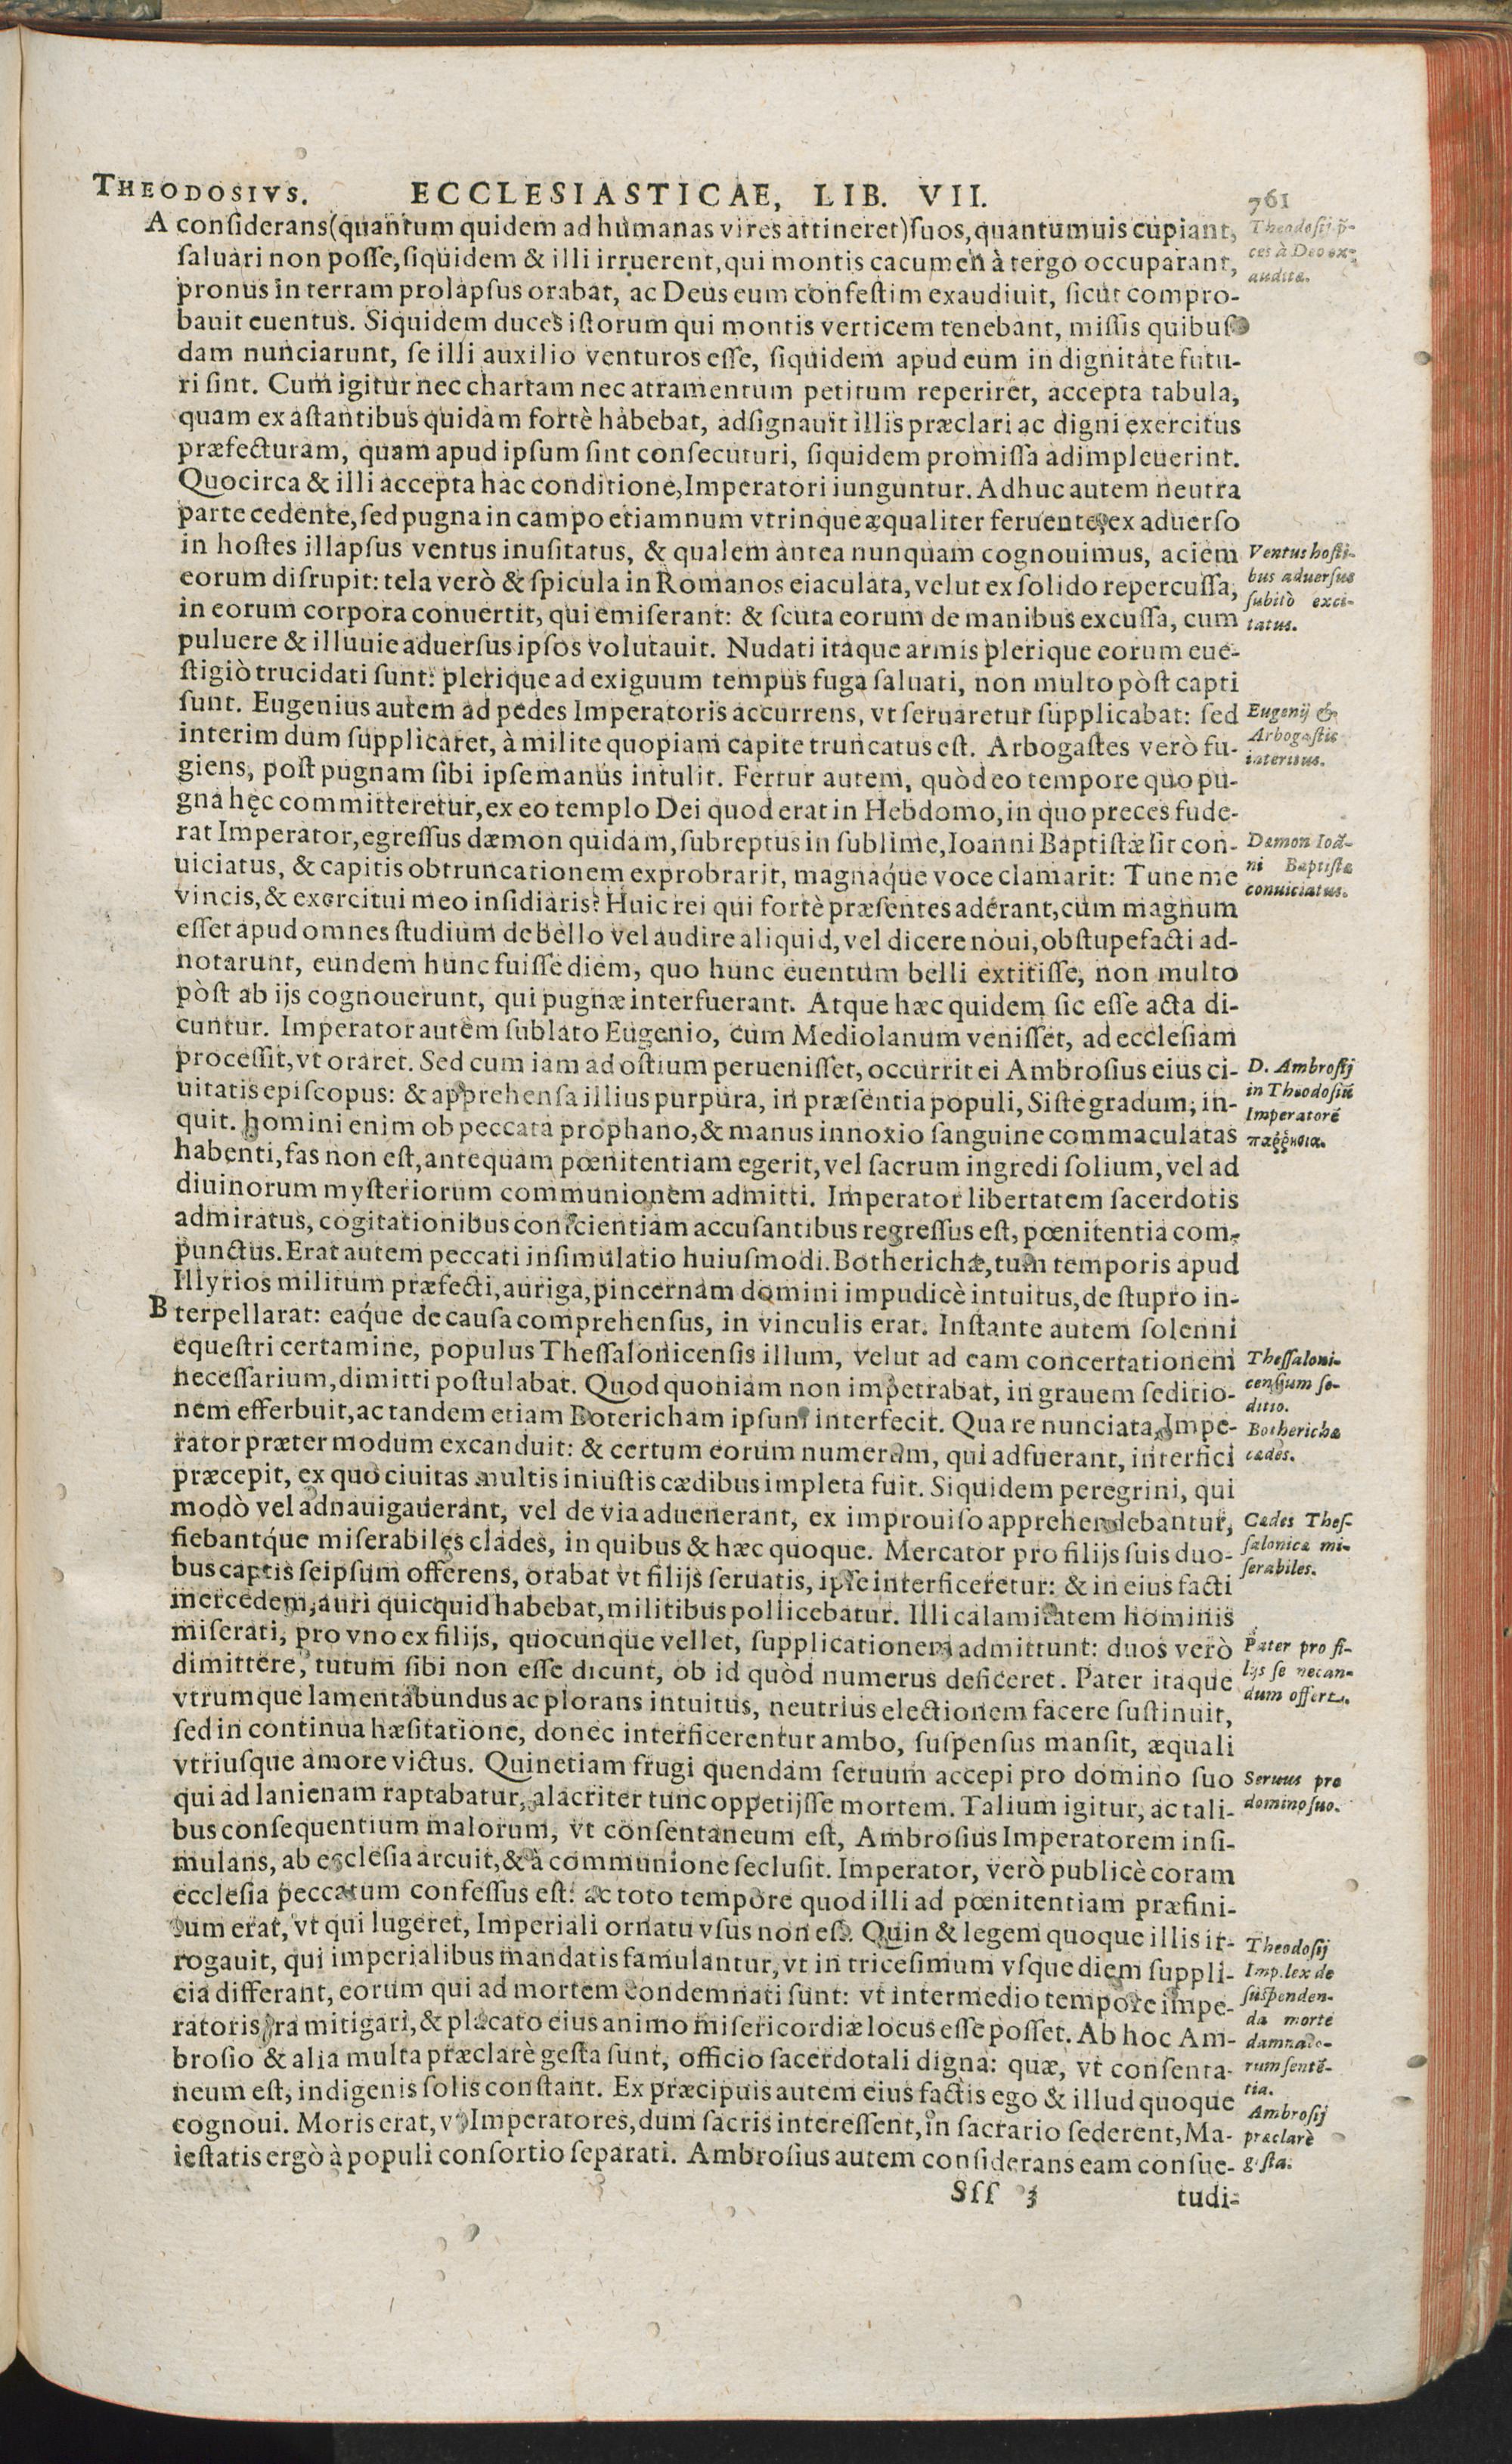 THEODOSIVS. ECCLESIASTICAE, LIB. VII. 761
A considerans (quantum quidem ad humanas vires attineret) suos, quantumuis cupiant,
saluari non posse, siquidem & illi irruerent, qui montis cacumen à tergo occuparant,
pronus in terram prolapsus orabat, ac Deus eum confestim exaudiuit, sicut compro-
bauit euentus. Siquidem duces istorum qui montis verticem tenebant, missis quibus
dam nunciarunt, se illi auxilio venturos esse, siquidem apud eum in dignitate futu-
ri sint. Cum igitur nec chartam nec atramentum petitum reperiret, accepta tabula,
quam ex astantibus quidam fortè habebat, adsignauit illis præclari ac digni exercitus
præfecturam, quam apud ipsum sint consecuturi, siquidem promissa adimpleuerint.
Quocirca & illi accepta hac conditione, Imperatori iunguntur. Adhuc autem neutra
parte cedente, sed pugna in campo etiamnum vtrinque æqualiter feruente, ex aduerso
in hostes illapsus ventus inusitatus, & qualem antea nunquam cognouimus, aciem
eorum disrupit: tela verò & spicula in Romanos eiaculata, velut ex solido repercussa,
in eorum corpora conuertit, qui emiserant: & scuta eorum de manibus excussa, cum
puluere & illuuie aduersus ipsos volutauit. Nudati itaque armis plerique eorum eue-
stigiò trucidati sunt: plerique ad exiguum tempus fuga saluati, non multo pòst capti
sunt. Eugenius autem ad pedes Imperatoris accurrens, vt seruaretur supplicabat: sed
interim dum supplicaret, à milite quopiam capite truncatus est. Arbogastes verò fu-
giens, post pugnam sibi ipse manus intulit. Fertur autem, quòd eo tempore quo pu-
gna hęc committeretur, ex eo templo Dei quod erat in Hebdomo, in quo preces fude-
rat Imperator, egressus dæmon quidam, subreptus in sublime, Ioanni Baptistæ sit con-
uiciatus, & capitis obtruncationem exprobrarit, magnáque voce clamarit: Tune me
vincis, & exercitui meo insidiaris? Huic rei qui fortè præsentes aderant, cum magnum
esset apud omnes studium de bello vel audire aliquid, vel dicere noui, obstupefacti ad-
notarunt, eundem hunc fuisse diem, quo hunc euentum belli extitisse, non multo
pòst ab ijs cognouerunt, qui pugnæ interfuerant. Atque hæc quidem sic esse acta di-
cuntur. Imperator autem sublato Eugenio, cum Mediolanum venisset, ad ecclesiam
processit, vt oraret. Sed cum iam ad ostium peruenisset, occurrit ei Ambrosius eius ci-
uitatis episcopus: & apprehensa illius purpura, in præsentia populi, Siste gradum, in-
quit. homini enim ob peccata prophano, & manus innoxio sanguine commaculatas
habenti, fas non est, antequam pœnitentiam egerit, vel sacrum ingredi solium, vel ad
diuinorum mysteriorum communionem admitti. Imperator libertatem sacerdotis
admiratus, cogitationibus conscientiam accusantibus regressus est, pœnitentia com-
punctus. Erat autem peccati insimulatio huiusmodi. Botherichæ, tum temporis apud
Illyrios militum præfecti, auriga, pincernam domini impudicè intuitus, de stupro in-
B terpellarat: eáque de causa comprehensus, in vinculis erat. Instante autem solenni
equestri certamine, populus Thessalonicensis illum, velut ad eam concertationem
necessarium, dimitti postulabat. Quod quoniam non impetrabat, in grauem seditio-
nem efferbuit, ac tandem etiam Botericham ipsum interfecit. Qua re nunciata, Impe-
rator præter modum excanduit: & certum eorum numerum, qui adfuerant, interfici
præcepit, ex quo ciuitas multis iniustis cædibus impleta fuit. Siquidem peregrini, qui
modò vel adnauigauerant, vel de via aduenerant, ex improuiso apprehendebantur,
fiebantq́ue miserabiles clades, in quibus & hæc quoque. Mercator pro filijs suis duo-
bus captis seipsum offerens, orabat vt filijs seruatis, ipse interficeretur: & in eius facti
mercedem, auri quicquid habebat, militibus pollicebatur. Illi calamitatem hominis
miserati, pro vno ex filijs, quocunque vellet, supplicationem admittunt: duos verò
dimittere, tutum sibi non esse dicunt, ob id quòd numerus deficeret. Pater itaque
vtrumque lamentabundus ac plorans intuitus, neutrius electionem facere sustinuit,
sed in continua hæsitatione, donec interficerentur ambo, suspensus mansit, æquali
vtriusque amore victus. Quinetiam frugi quendam seruum accepi pro domino suo
qui ad lanienam raptabatur, alacriter tunc oppetijsse mortem. Talium igitur, ac tali-
bus consequentium malorum, vt consentaneum est, Ambrosius Imperatorem insi-
mulans, ab ecclesia arcuit, & à communione seclusit. Imperator, verò publicè coram
ecclesia peccatum confessus est: ac toto tempore quod illi ad pœnitentiam præfini-
tum erat, vt qui lugeret, Imperiali ornatu vsus non est. Quin & legem quoque illis ir-
rogauit, qui imperialibus mandatis famulantur, vt in tricesimum vsque diem suppli-
cia differant, eorum qui ad mortem condemnati sunt: vt intermedio tempore impe-
ratoris ira mitigari, & placato eius animo misericordiæ locus esse posset. Ab hoc Am-
brosio & alia multa præclarè gesta sunt, officio sacerdotali digna: quæ, vt consenta-
neum est, indigenis solis constant. Ex præcipuis autem eius factis ego & illud quoque
cognoui. Moris erat, vt Imperatores, dum sacris interessent, in sacrario sederent, Ma-
iestatis ergò à populi consortio separati. Ambrosius autem considerans eam consue-
Sss 3 tudi-
Theodosij p̃-
ces à Deo ex-
auditæ.
Ventus hosti-
bus aduersus
subitò exci-
tatus.
Eugenij &
Arbogastis
interitus.
Dæmon Ioã-
ni Baptistæ
conuiciatus.
D. Ambrosij
in Theodosiũ
Imperatorẽ
παῤῥησία.
Thessaloni-
censium se-
ditio.
Bothericha
cædes.
Cædes Thes-
salonica mi-
serabiles.
Pater pro fi-
lijs se necan-
dum offert.
Seruus pro
domino suo.
Theodosij
Imp. lex de
suspenden-
da morte
damnato-
rum sentẽ-
tia.
Ambrosij
præclarè
gesta.